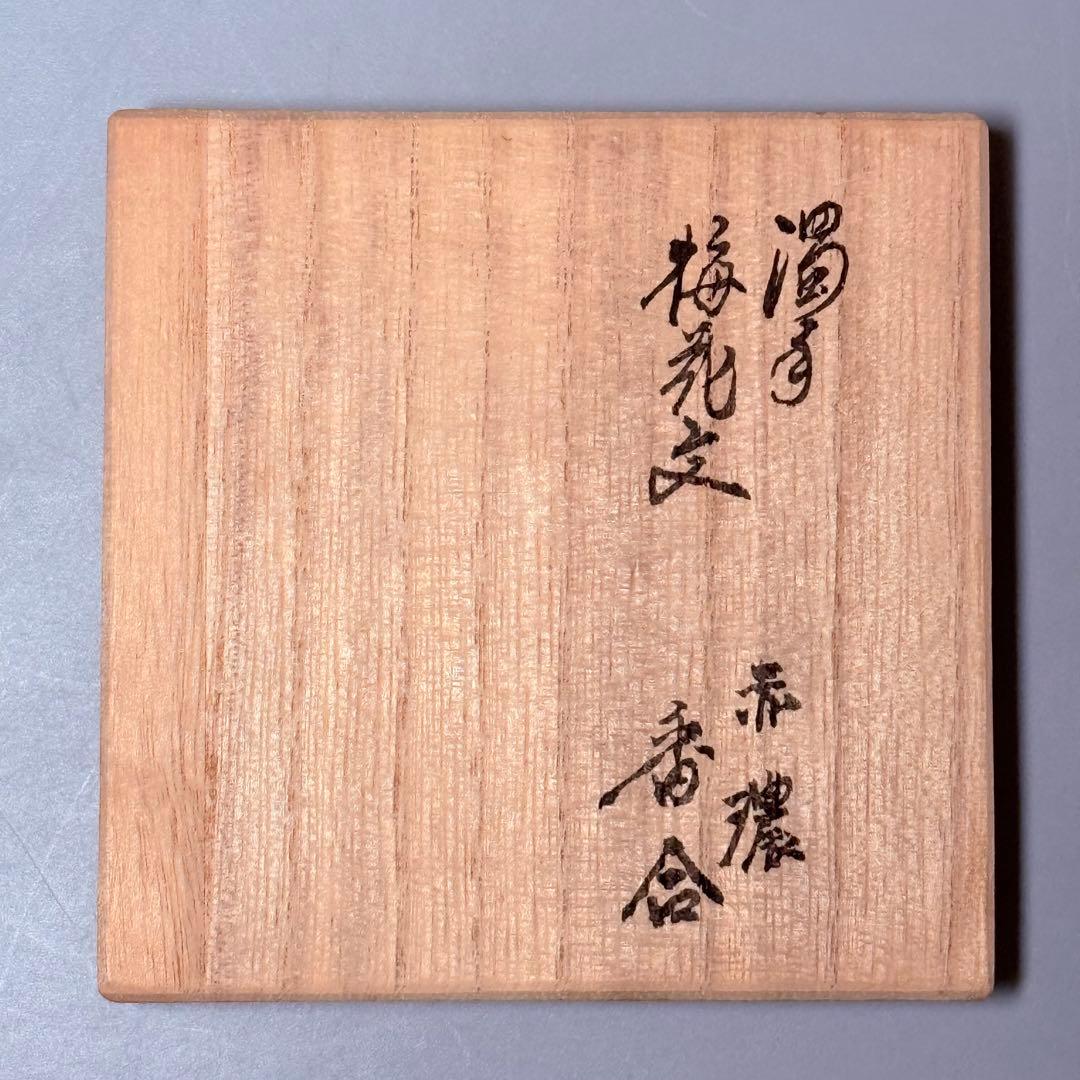 濁手
梅花文
赤濃
香合